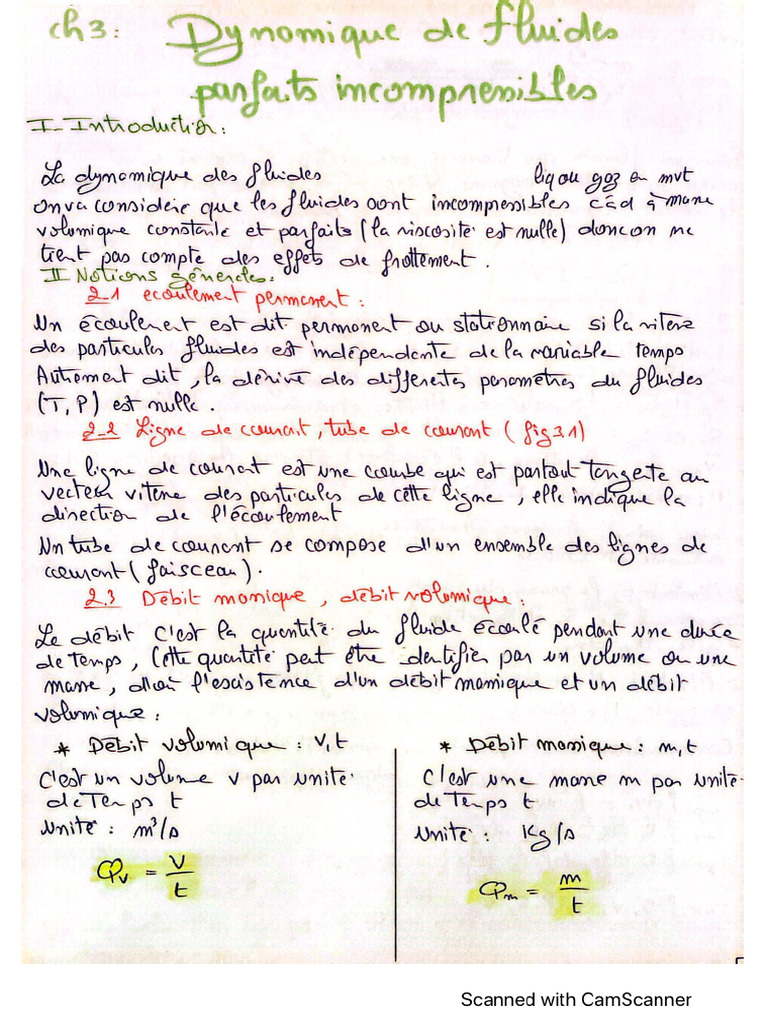 ch3: Dynamique de fluides
parfaits incompressibles
I- Introduction:
La dynamique des fluides liq ou gaz en mvt
on va considére que les fluides sont incompressibles càd à masse
volumique constante et parfaits (la viscosité est nulle) donc on ne
tient pas compte des effets de frottement.
II Notions génerales:
2-1 ecoulement permanent:
Un écoulement est dit permanent ou stationnaire si la vitesse
des particules fluides est indépendante de la variable temps
Autrement dit, la dérivé des differentes parametres du fluides
(T, P) est nulle.
2-2 Ligne de courant, tube de courant (fig 3.1)
Une ligne de courant est une courbe qui est partout tangete au
vecteur vitesse des particules de cette ligne, elle indique la
direction de l'écoulement
Un tube de courant se compose d'un ensemble des lignes de
courant (faisceau).
2.3 Débit massique, débit volumique:
Le débit c'est la quantité du fluide écoulé pendant une durée
de temps, Cette quantité peut être identifier par un volume ou une
masse, d'où l'existence d'un débit massique et un débit
volumique:
* Débit volumique: V, t
C'est un volume V par unité
de Temps t
Unité: m³/s
φv = V/t
* Débit massique: m, t
C'est une masse m par unité
de Temps t
Unité: Kg/s
φm = m/t
Scanned with CamScanner